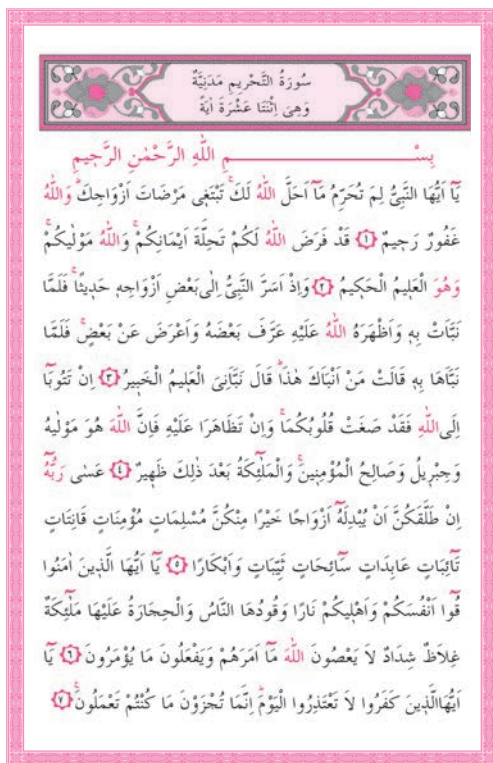 سُورَةُ التَّحْرِيمِ مَدَنِيَّةٌ
وَهِىَ اِثْنَتَا عَشْرَةَ اٰيَةً
بِسْــــــــــــمِ اللّٰهِ الرَّحْمٰنِ الرَّحٖيمِ
يَٓا اَيُّهَا النَّبِىُّ لِمَ تُحَرِّمُ مَٓا اَحَلَّ اللّٰهُ لَكَۚ تَبْتَغٖى مَرْضَاتَ اَزْوَاجِكَؕ وَاللّٰهُ
غَفُورٌ رَحٖيمٌ ﴿١﴾ قَدْ فَرَضَ اللّٰهُ لَكُمْ تَحِلَّةَ اَيْمَانِكُمْۚ وَاللّٰهُ مَوْلٰيكُمْۚ
وَهُوَ الْعَلٖيمُ الْحَكٖيمُ ﴿٢﴾ وَاِذْ اَسَرَّ النَّبِىُّ اِلٰى بَعْضِ اَزْوَاجِهٖ حَدٖيثًاۚ فَلَمَّا
نَبَّاَتْ بِهٖ وَاَظْهَرَهُ اللّٰهُ عَلَيْهِ عَرَّفَ بَعْضَهُ وَاَعْرَضَ عَنْ بَعْضٍۚ فَلَمَّا
نَبَّاَهَا بِهٖ قَالَتْ مَنْ اَنْبَاَكَ هٰذَاؕ قَالَ نَبَّاَنِىَ الْعَلٖيمُ الْخَبٖيرُ ﴿٣﴾ اِنْ تَتُوبَٓا
اِلَى اللّٰهِ فَقَدْ صَغَتْ قُلُوبُكُمَاۚ وَاِنْ تَظَاهَرَا عَلَيْهِ فَاِنَّ اللّٰهَ هُوَ مَوْلٰيهُ
وَجِبْرٖيلُ وَصَالِحُ الْمُؤْمِنٖينَۚ وَالْمَلٰٓئِكَةُ بَعْدَ ذٰلِكَ ظَهٖيرٌ ﴿٤﴾ عَسٰى رَبُّهُٓ
اِنْ طَلَّقَكُنَّ اَنْ يُبْدِلَهُٓ اَزْوَاجًا خَيْرًا مِنْكُنَّ مُسْلِمَاتٍ مُؤْمِنَاتٍ قَانِتَاتٍ
تَٓائِبَاتٍ عَابِدَاتٍ سَٓائِحَاتٍ ثَيِّبَاتٍ وَاَبْكَارًا ﴿٥﴾ يَٓا اَيُّهَا الَّذٖينَ اٰمَنُوا
قُٓوا اَنْفُسَكُمْ وَاَهْلٖيكُمْ نَارًا وَقُودُهَا النَّاسُ وَالْحِجَارَةُ عَلَيْهَا مَلٰٓئِكَةٌ
غِلَاظٌ شِدَادٌ لَا يَعْصُونَ اللّٰهَ مَٓا اَمَرَهُمْ وَيَفْعَلُونَ مَا يُؤْمَرُونَ ﴿٦﴾ يَٓا
اَيُّهَا الَّذٖينَ كَفَرُوا لَا تَعْتَذِرُوا الْيَوْمَؕ اِنَّمَا تُجْزَوْنَ مَا كُنْتُمْ تَعْمَلُونَ ﴿٧﴾